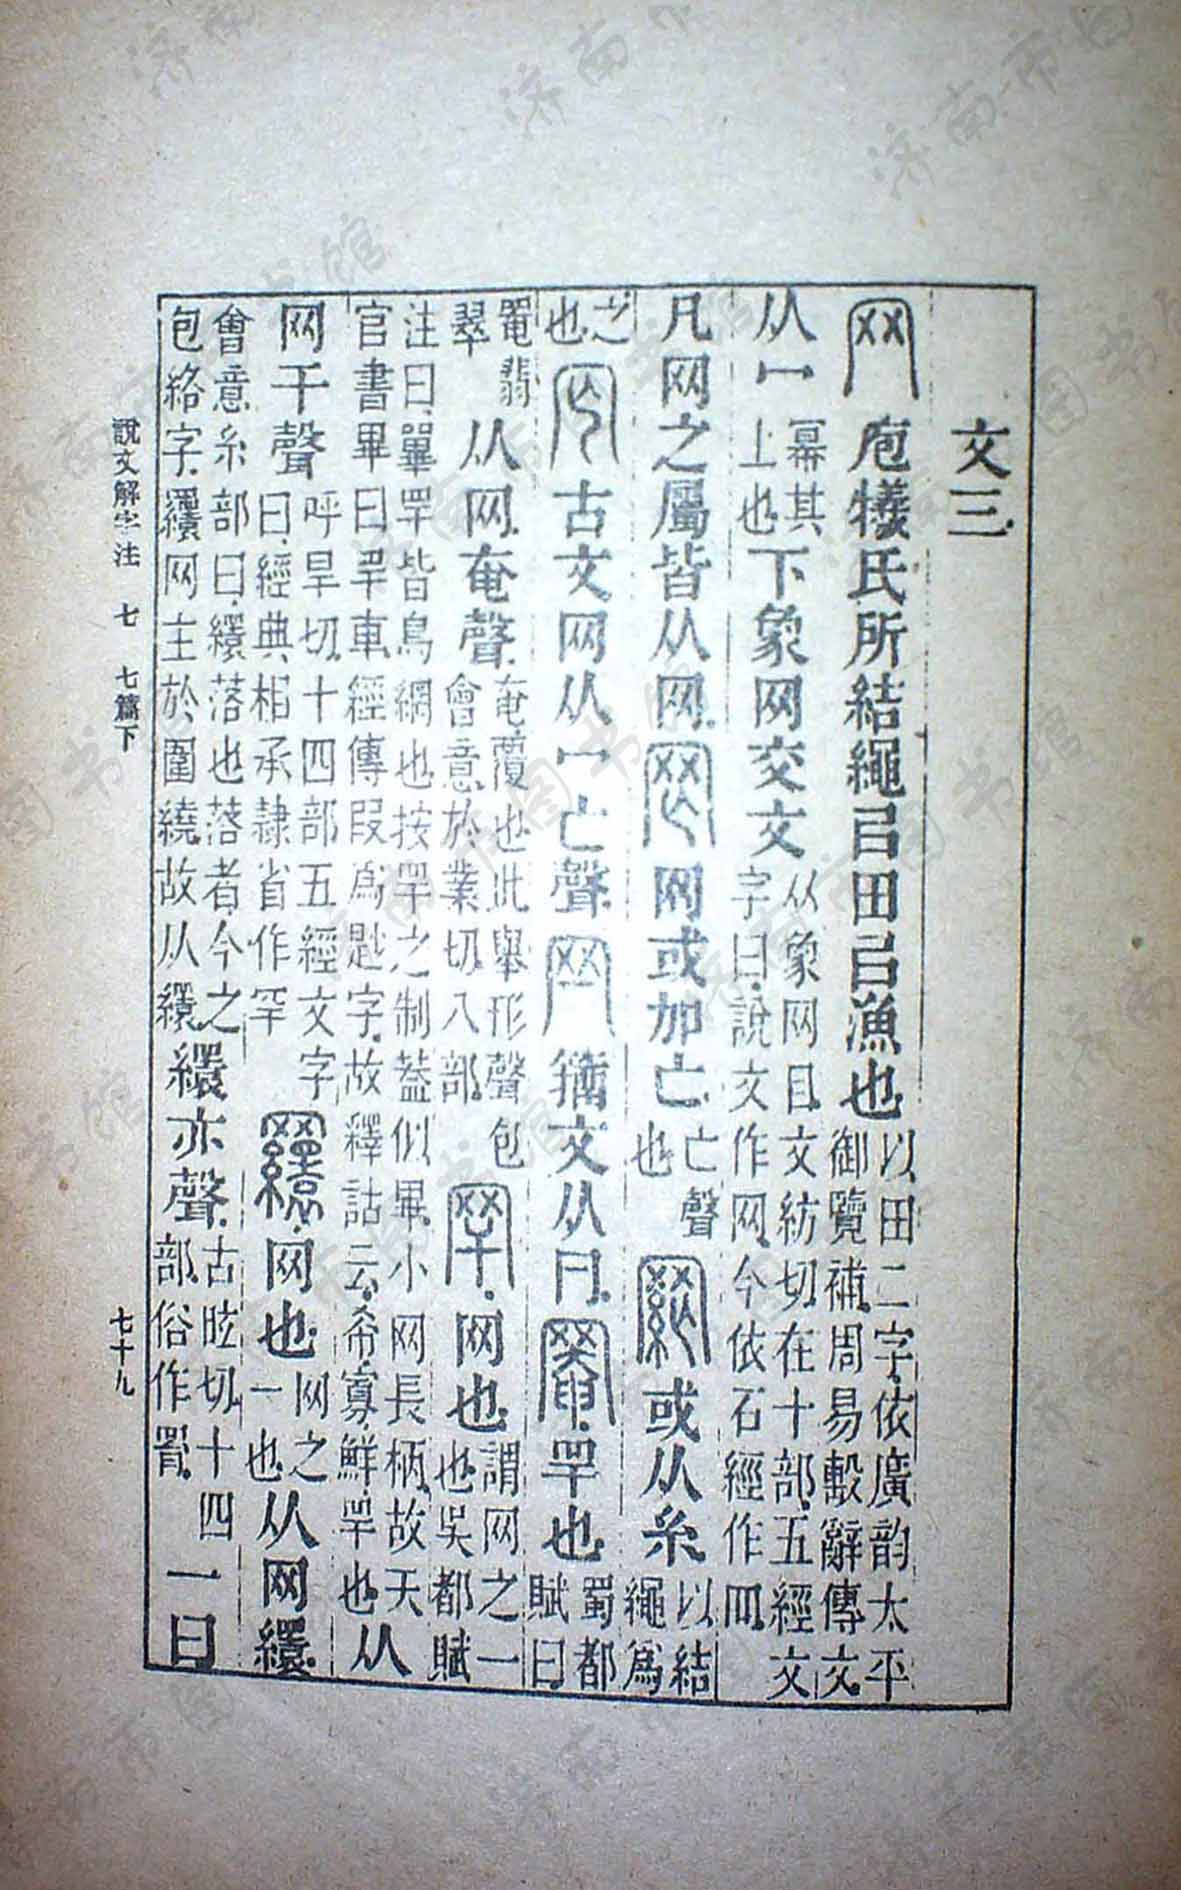 文三
网庖犧氏所結繩㠯田㠯漁也以田二字依廣韵太平御覽補周易毄辭傳文
从冖冪其上也下象网交文从象网目文紡切在十部五經文字曰說文作网今依石經作罒
凡网之屬皆从网罔网或加亡亡聲也網或从糸以結繩爲
之也𦉸古文网从冖亡聲𦉹籒文从冃罨罕也蜀都賦曰
罨翡翠从网奄聲奄覆也此舉形聲包會意於業切八部罕网也謂网之一也吳都賦
注曰罼罕皆鳥網也按罕之制蓋似畢小网長柄故天官書畢曰罕車經傳叚爲尟字故釋詁云希寡鮮罕也从
网干聲呼旱切十四部五經文字曰經典相承隷省作罕䍻网也网之一也从网繯
會意糸部曰繯落也落者今之包絡字䍻网主於圍繞故从繯繯亦聲古眩切十四部俗作罥一曰
說文解字注 七 七篇下 七十九